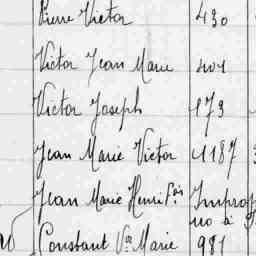 Pierre Victor 430
Victor Jean Marie 401
Victor Joseph 173
Jean Marie Victor 1187
Jean Marie Henri Improp
no à
Constant Marie 981